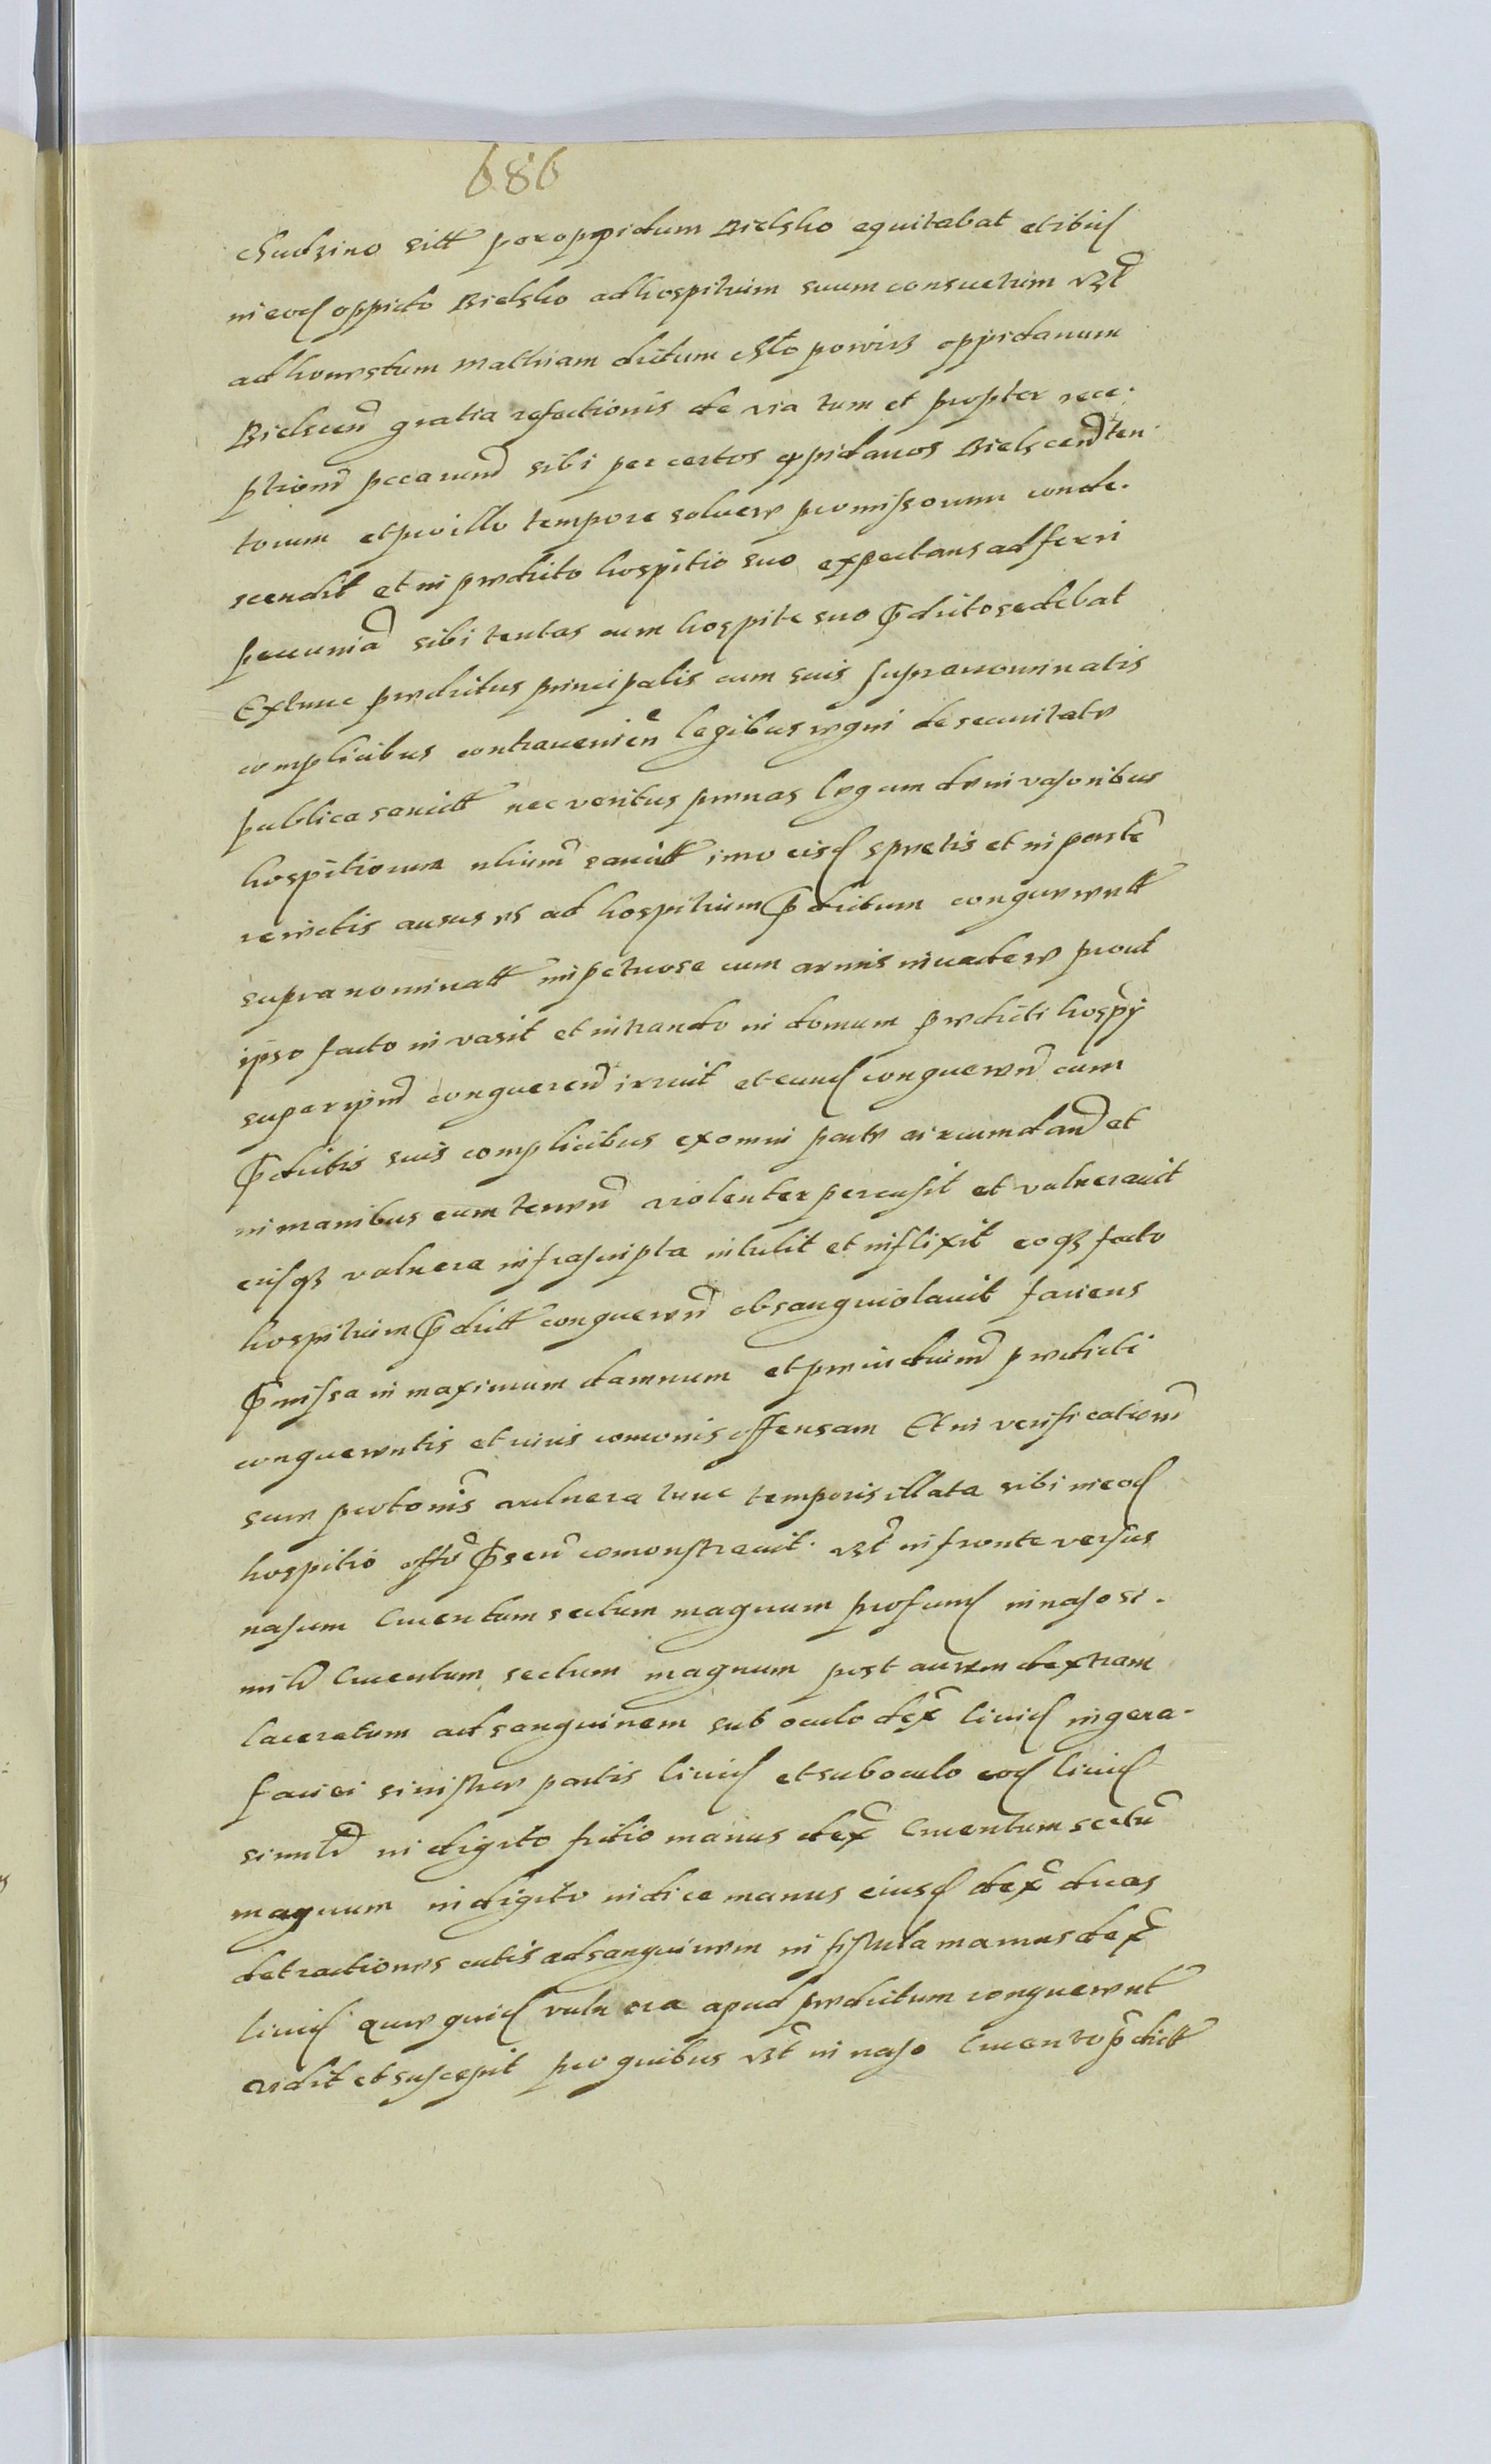 686
Chudzino sitt per oppidum Bielsko equitabat et ibid
in eod oppido Bielsko ad hospitium suum consuetum vet
ad honestum Mathiam dictum
Bielscen gratia refectionis de via tum et propter rece-
ptionem pecarum sibi per certos oppidanos Bielscen ten-
torum et pro illo tempore soluere promissorum conde-
scendit et in predicto hospitio suo expectans adferri
pecunia sibi tentas cum hospite suo predicto sedebat
Extunc predictus principalis cum suis supranominatis
complicibus contravenien legibus regni de securitate
publica sancitt nec veritus penas legum de invasoribus
hospitiorum sancitt imo eisd spretis et in parte
reiectis ausus es ad hospitium predictum conquerentt
supranominatt impetuose cum armis inuadere prout
ipso facto invasit et intrando in domum predicti hospy
super ipm conqueren irruit et eund conqueren cum
predictis suis complicibus ex omni parte circumdan et
in manibus eum tenen violenter percussit et vulnerauit
eusq vulnera infrascripta intulit et inflixit eoq facto
hospitium predictt conqueren obsanguiolauit faciens
premissa in maximum damnum et preiudicium predicti
conquerentis et iuris comonis offensam Et in verificationem
sue protonis vulnera tunc temporis illata sibi in eod
hospitio offo presen comonstrauit vet in fronte versus
nasum cruentum sectum magnum profund in naso si-
mile cruentum sectum magnum post aurem dextram
laceratum ad sanguinem sub oculo dex liuid in gera-
faciei sinistre partis liuid et sub oculo eod liuid
simile in digito manus dex cruentum sectu
magnum in digito indice manus eiusd dex duas
detractiones cutis ad sanguinem in fistula manus dex
liuid que quid vulnera apud predictum conquerent
vidit et suscepit pro quibus vet in naso cruento predictt